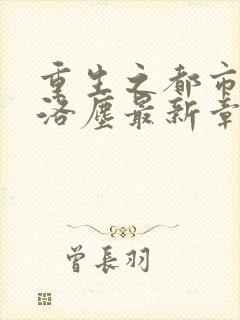 重生之都市
洛塵最新章
曾長羽